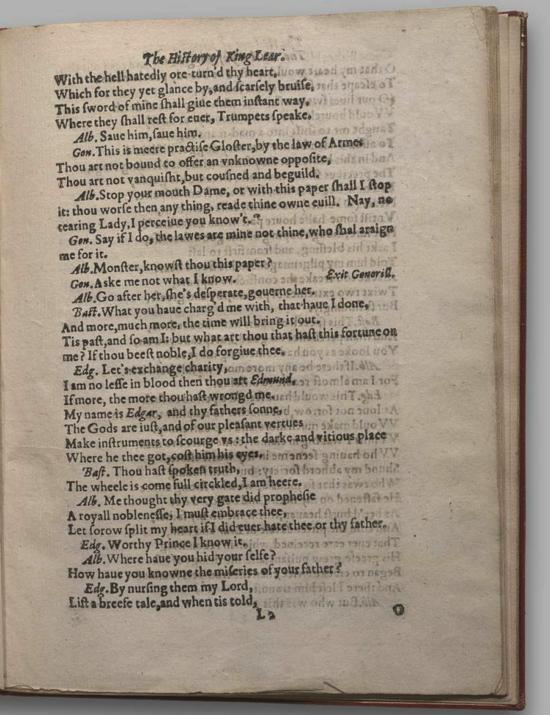 The History of King Lear.
With the hell hatedly ore-turn'd thy heart,
Which for they yet glance by, and scarsely bruise,
This sword of mine shall giue them instant way,
Where they shall rest for euer, Trumpets speake.
Alb. Saue him, saue him.
Gon. This is meere practise Gloster, by the law of Armes
Thou art not bound to offer an vnknowne opposite,
Thou art not vanquisht, but cousned and beguild.
Alb. Stop your mouth Dame, or with this paper shall I stop
it: thou worse then any thing, reade thine owne euill. Nay, no
tearing Lady, I perceiue you know't.
Gon. Say if I do, the lawes are mine not thine, who shal araign
me for it.
Alb. Monster, knowst thou this paper?
Gon. Aske me not what I know. Exit Gonorill.
Alb. Go after her, she's desperate, gouerne her.
Bast. What you haue charg'd me with, that haue I done,
And more, much more, the time will bring it out.
Tis past, and so am I: but what art thou that hast this fortune on
me? If thou beest noble, I do forgiue thee.
Edg. Let's exchange charity,
I am no lesse in blood then thou art Edmund,
If more, the more thou hast wrongd me.
My name is Edgar, and thy fathers sonne,
The Gods are iust, and of our pleasant vertues
Make instruments to scourge vs: the darke and vitious place
Where he thee got, cost him his eyes.
Bast. Thou hast spoken truth,
The wheele is come full circkled, I am heere.
Alb. Me thought thy very gate did prophesie
A royall noblenesse, I must embrace thee,
Let sorow split my heart if I did euer hate thee or thy father.
Edg. Worthy Prince I know it.
Alb. Where haue you hid your selfe?
How haue you knowne the miseries of your father?
Edg. By nursing them my Lord,
List a breefe tale, and when tis told,
L2 O